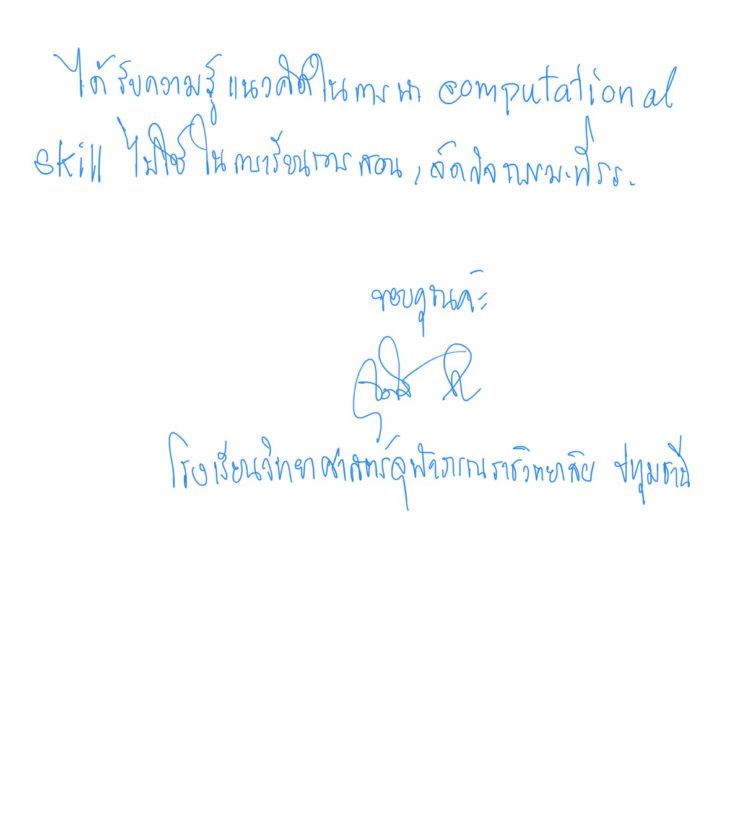 ได้รับความรู้ แนวคิดในการนำ computational
skill ไปใช้ในการเรียนการสอน, จัดกิจกรรมที่รร.
ขอบคุณค่ะ
โรงเรียนวิทยาศาสตร์จุฬาภรณราชวิทยาลัย ปทุมธานี